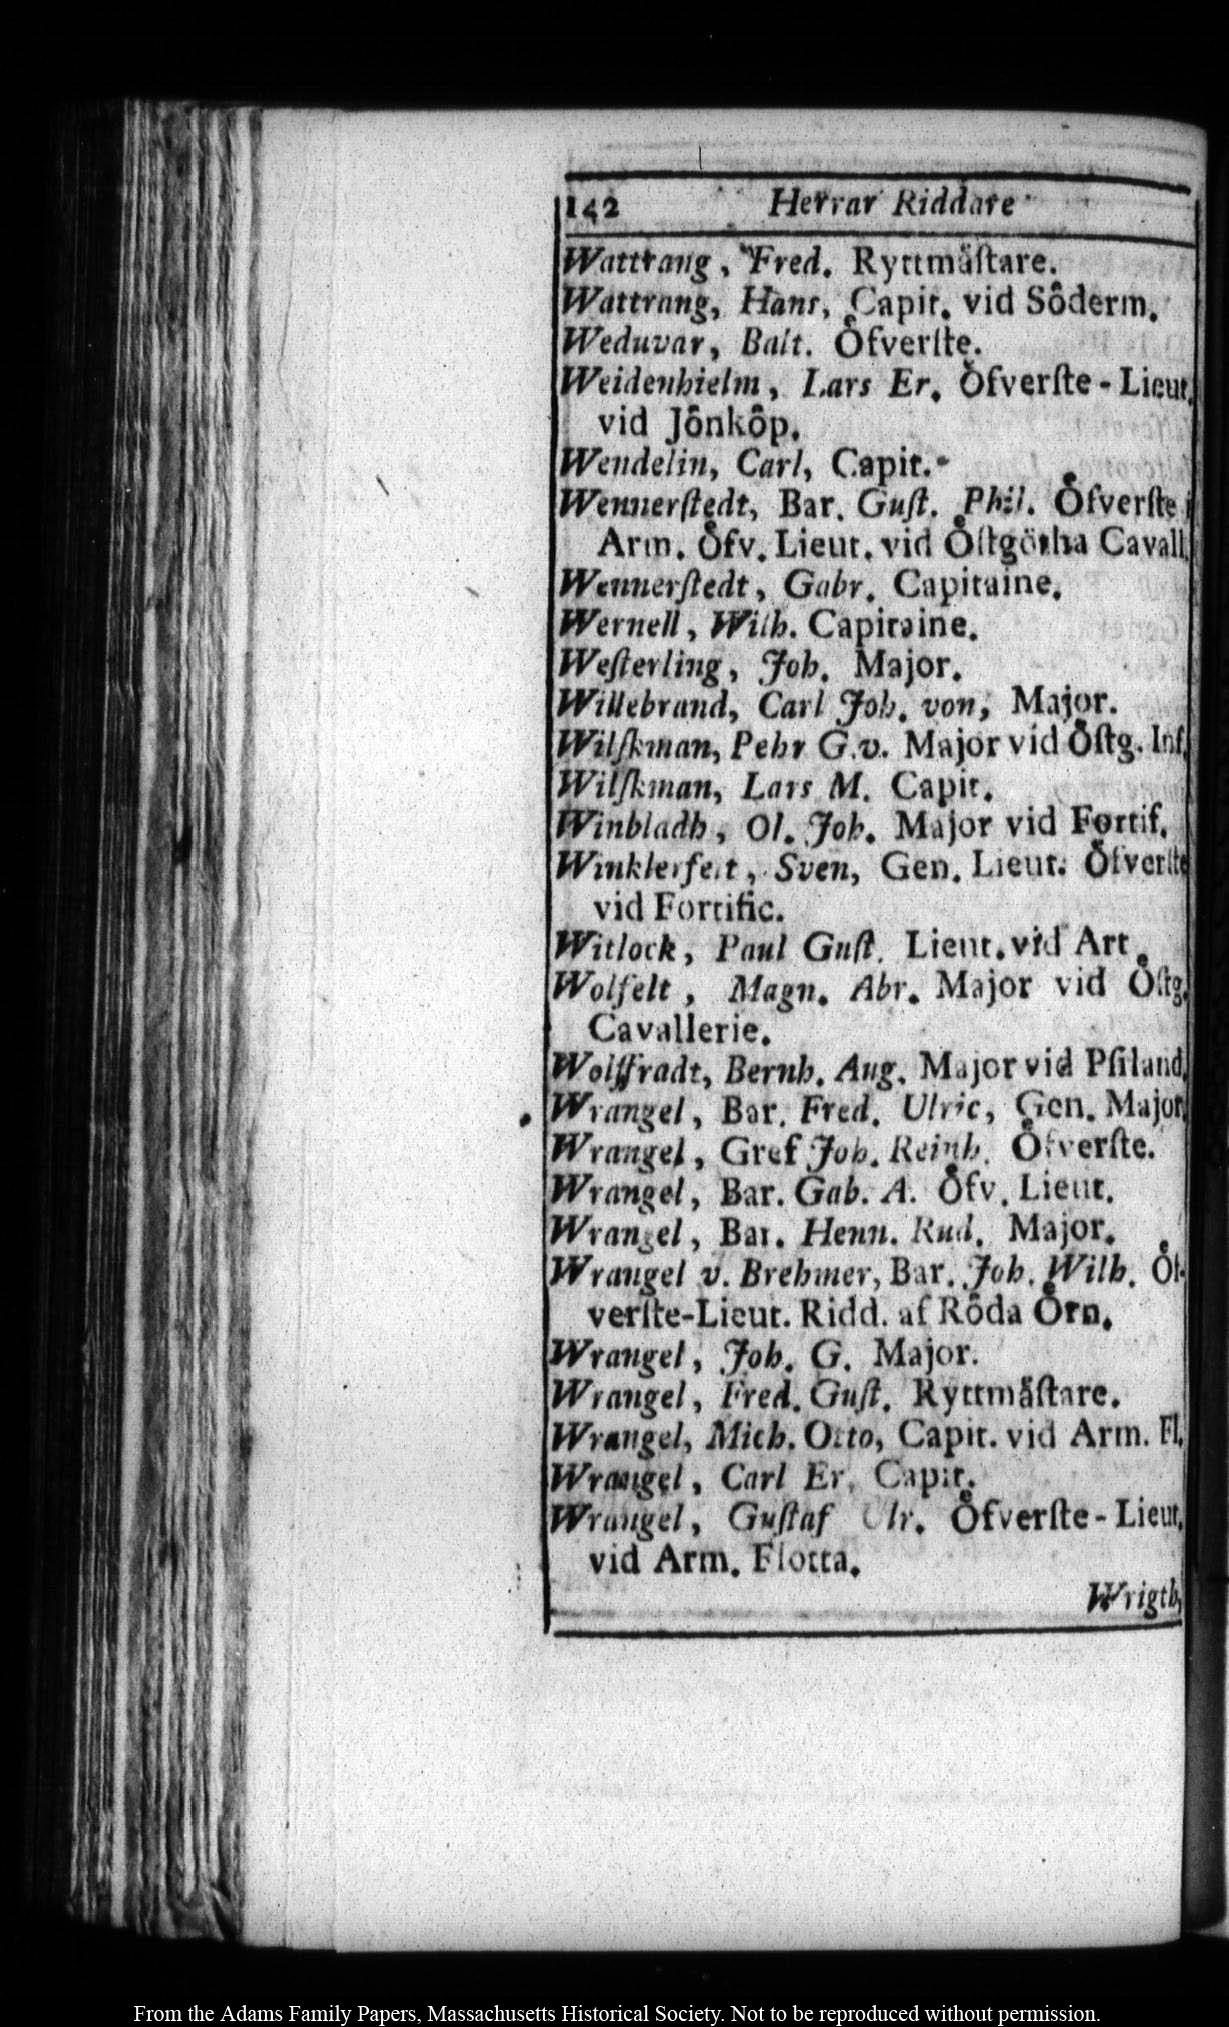 142 Herrar Riddare
Wattrang, Fred. Ryttmåſtare.
Wattrang, Hans, Capit. vid Sôderm.
Weduvar, Balt. Öfverſte.
Weidenhielm, Lars Er. Öfverſte-Lieut.
vid Jônkôp.
Wendelin, Carl, Capit.
Wennerſtedt, Bar. Guſt. Phil. Öfverſte i
Arm. Öfv. Lieut. vid Öſtgötha Cavall.
Wennerſtedt, Gabr. Capitaine.
Wernell, Wilh. Capitaine.
Weſterling, Joh. Major.
Willebrand, Carl Joh. von, Major.
Wilſkman, Pehr G.v. Major vid Öſtg. Inf.
Wilſkman, Lars M. Capit.
Winbladh, Ol. Joh. Major vid Fortif.
Winklerfelt, Sven, Gen. Lieut. Öfverſte
vid Fortific.
Witlock, Paul Guſt. Lieut. vid Art.
Wolfelt, Magn. Abr. Major vid Öſtg.
Cavallerie.
Wolffradt, Bernh. Aug. Major vid Pſiland.
Wrangel, Bar. Fred. Ulric, Gen. Major.
Wrangel, Gref Joh. Reinh. Öfverſte.
Wrangel, Bar. Gab. A. Öfv. Lieut.
Wrangel, Bar. Henn. Rud. Major.
Wrangel v. Brehmer, Bar. Joh. Wilh. Öf-
verſte-Lieut. Ridd. af Rôda Örn.
Wrangel, Joh. G. Major.
Wrangel, Fred. Guſt. Ryttmåſtare.
Wrangel, Mich. Otto, Capit. vid Arm. Fl.
Wrangel, Carl Er. Capit.
Wrangel, Guſtaf Ulr. Öfverſte-Lieut.
vid Arm. Flotta.
Wrigth,
From the Adams Family Papers, Massachusetts Historical Society. Not to be reproduced without permission.